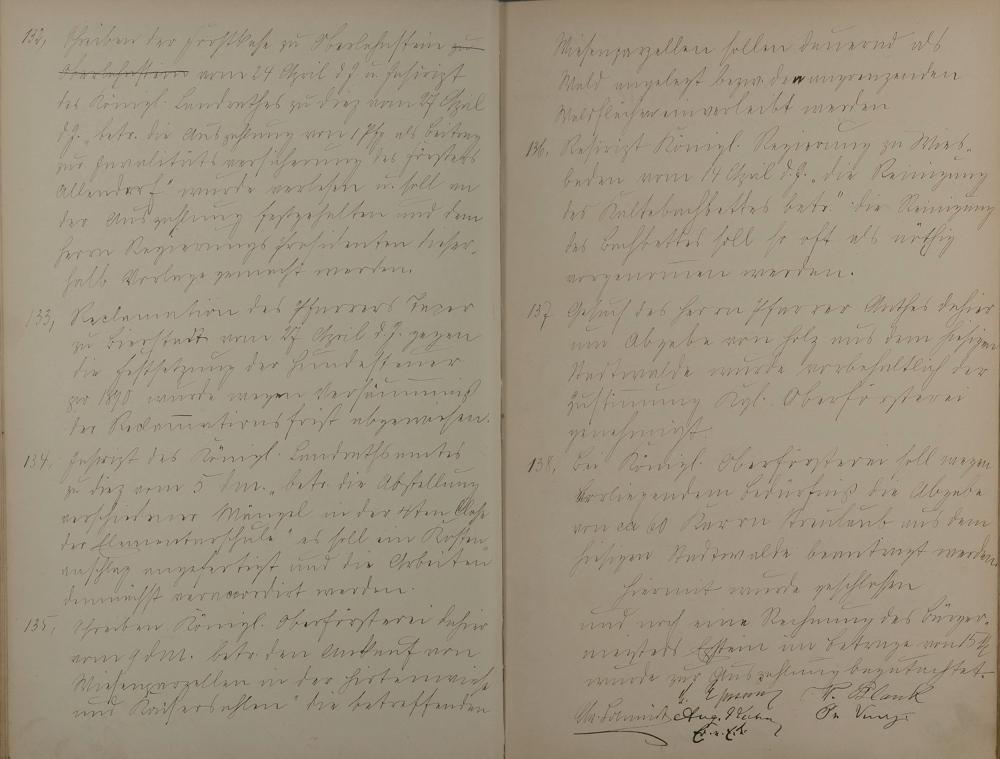 132, Schreiben der Forstkasse zu Oberlahnstein zu
Oberlahnstein vom 24 April d. J. u. Rescript
des Königl. Landrathes zu Diez vom 27 April
d. J. „betr. die Auszahlung von 1 Pfg als Beitrag
zur Invaliditätsversicherung des Försters
Allendorf" wurde verlesen u. soll an
der Auszahlung festgehalten und dem
Herrn Regierungs Präsidenten dieser-
halb Vorlage gemacht werden.
133, Reclamation des Pfarrers
zu Bierstadt vom 27 April d. J. gegen
die Festsetzung der Hundesteuer
pro 1890 wurde wegen Versäumniß
der Reclamationsfrist abgewiesen.
134, Rescript des Königl. Landrathsamtes
zu Diez vom 5 d. M. „betr. die Abstellung
verschiedener Mängel in der 4ten Classe
der Elementarschule" es soll ein Kosten-
anschlag angefertigt und die Arbeiten
demnächst veraccordirt werden.
135, Schreiben Königl. Oberförsterei dahier
vom 9 d. M. betr. den Ankauf von
Wiesenparzellen in der Hirtenwiese
und Kaisersohlen" die betreffenden
Wiesenparzellen sollen dauernd als
Wald angelegt bezw. den angrenzenden
Waldflächen einverleibt werden
136, Rescript Königl. Regierung zu Wies-
baden vom 14 April d. J. „die Reinigung
des Kaltebachbettes betr." die Reinigung
des Bachbettes soll so oft als nöthig
vorgenommen werden.
137 Gesuch des Herrn Pfarrer Anthes dahier
um Abgabe von Holz aus dem hiesigen
Stadtwalde wurde vorbehaltlich der
Zustimmung Kgl. Oberförsterei
genehmigt.
138, Bei Königl. Oberförsterei soll wegen
vorliegendem Bedürfniß die Abgabe
von ca 60 Karrn Streulaub aus dem
hiesigen Stadtwalde beantragt werden.
Hiermit wurde geschlossen
und noch eine Rechnung des Bürger-
meisters Epstein im Betrage von 15 M
wurde zur Auszahlung begutachtet.
W. Blank
Schmidt Aug.